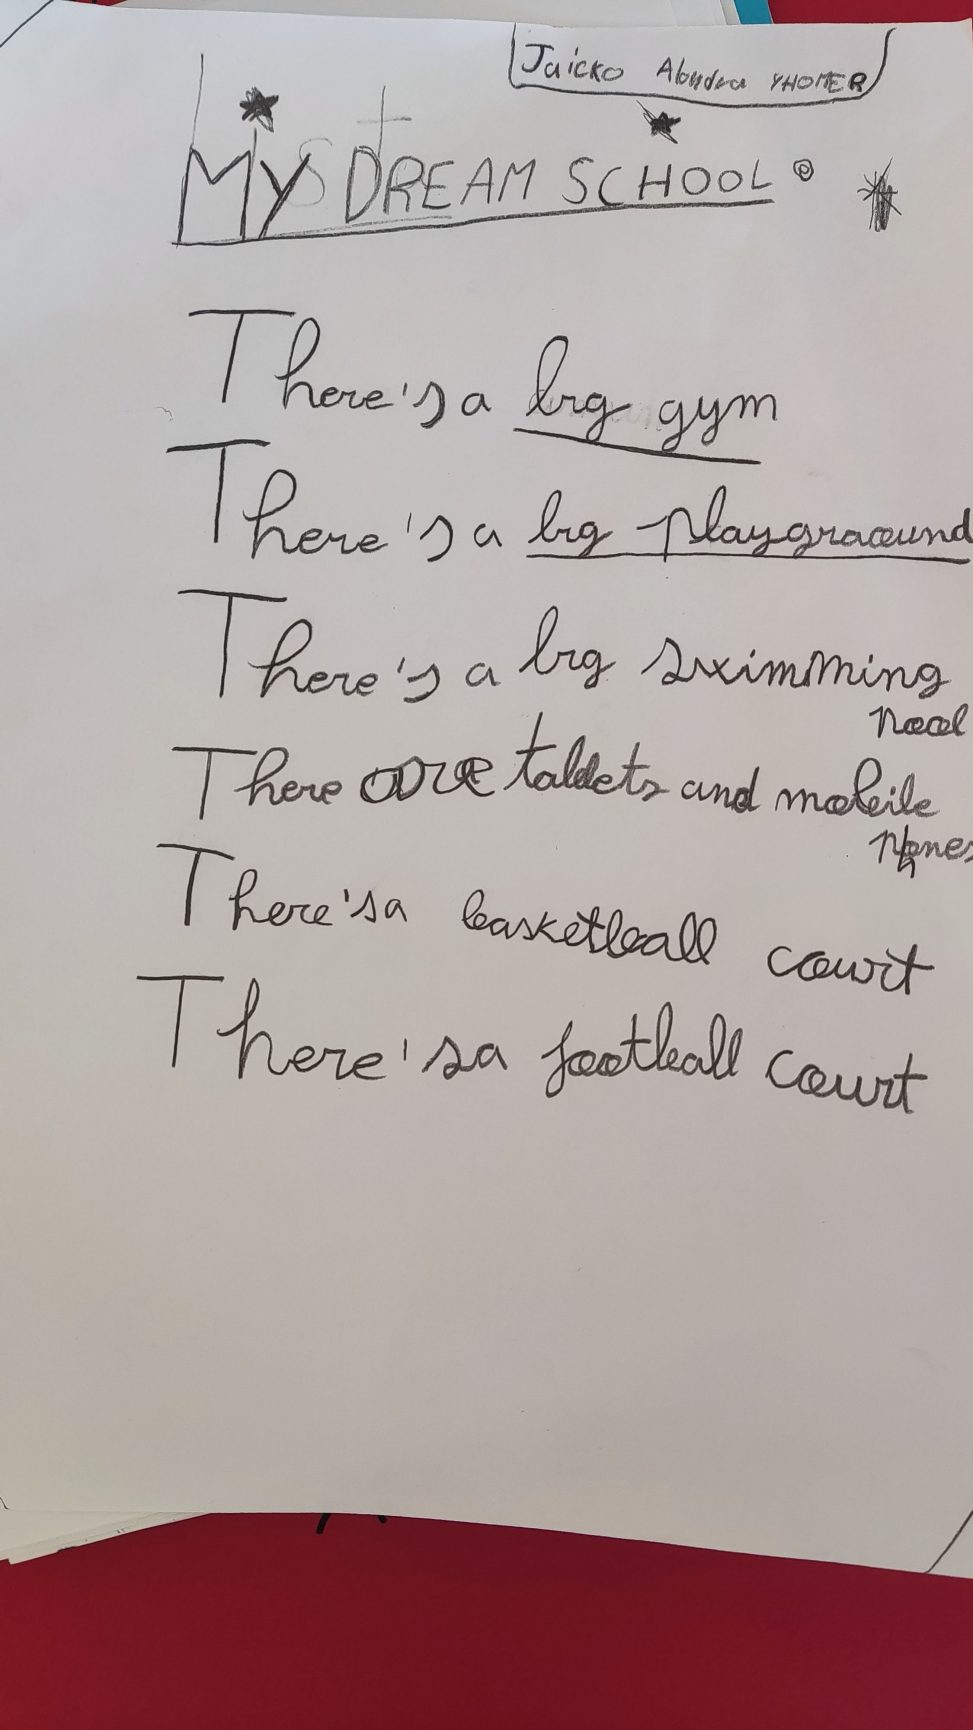 Jaicko Alondra YHOMER
MY DREAM SCHOOL
There's a big gym
There's a big playground
There's a big swimming
pool
There are tablets and mobile
phones
There's a basketball court
There's a football court